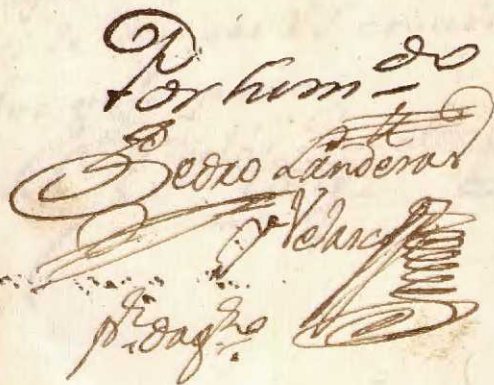 Por hum–do
Pedro Landeras
y Velasco